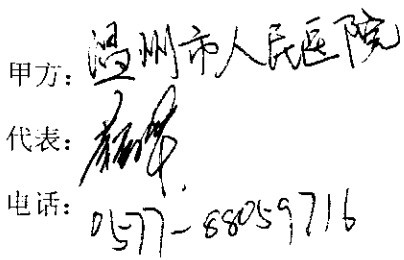 甲方：温州市人民医院
代表：
电话：0577-88059716